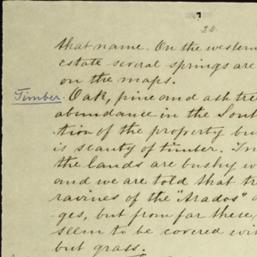 20.
that name. On the western
estate several springs are
on the maps.
Timber. Oak, pine and ash tre
abundance in the Sout
tion of the property bu
is scauty of timber. In
the lands are bushy w
and we are told that tr
ravines of the "Arados" a
ges, but from far these
seem to be covered wi
but grass.